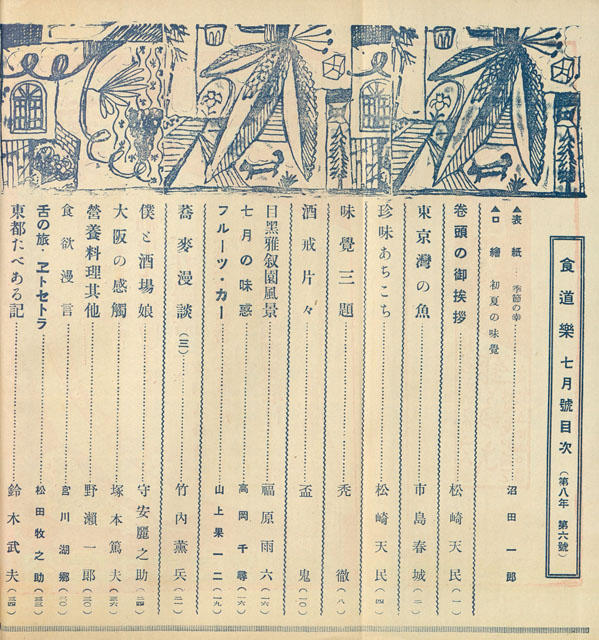 食道樂 七月號目次 (第八年 第六號)
▲表紙…季節の幸……沼田一郎
▲口繪 初夏の味覺
巻頭の御挨拶……松崎天民(一)
東京灣の魚……市島春城(二)
珍味あちこち……松崎天民(四)
味覺三題……禿徹(八)
酒戒片々……盃鬼(一〇)
目黑雅叙園風景……福原雨六
七月の味惑……高岡千尋(一六)
フルーツ・カー……山上果一二(一九)
蕎麥漫談(三)……竹內薰兵(二一)
僕と酒場娘……守安麗之助(二四)
大阪の感觸……塚本篤夫(二六)
營養料理其他……野瀨一郎(三〇)
食欲漫言……宮川湖鄕(三〇)
舌の旅・ヱトセトラ……松田牧之助(三三)
東都たべある記……鈴木武夫(三四)